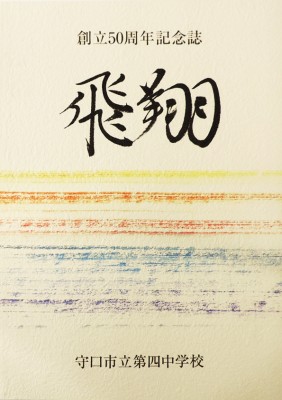 創立50周年記念誌
飛翔
守口市立第四中学校